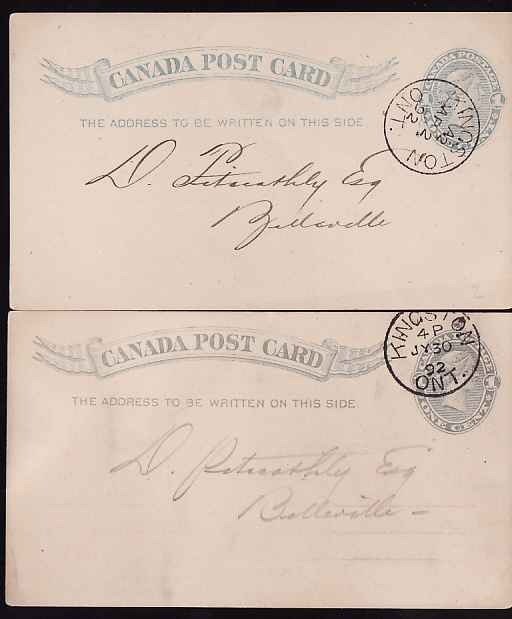 CANADA POST CARD
THE ADDRESS TO BE WRITTEN ON THIS SIDE
CANADA POSTAGE
KINGSTON
92
ONT.
D. Pitceathly Esq
Belleville
CANADA POST CARD
THE ADDRESS TO BE WRITTEN ON THIS SIDE.
KINGSTON
4 P
JY 30
92
ONT.
ONE CENT
D. Pitceathly Esq
Belleville